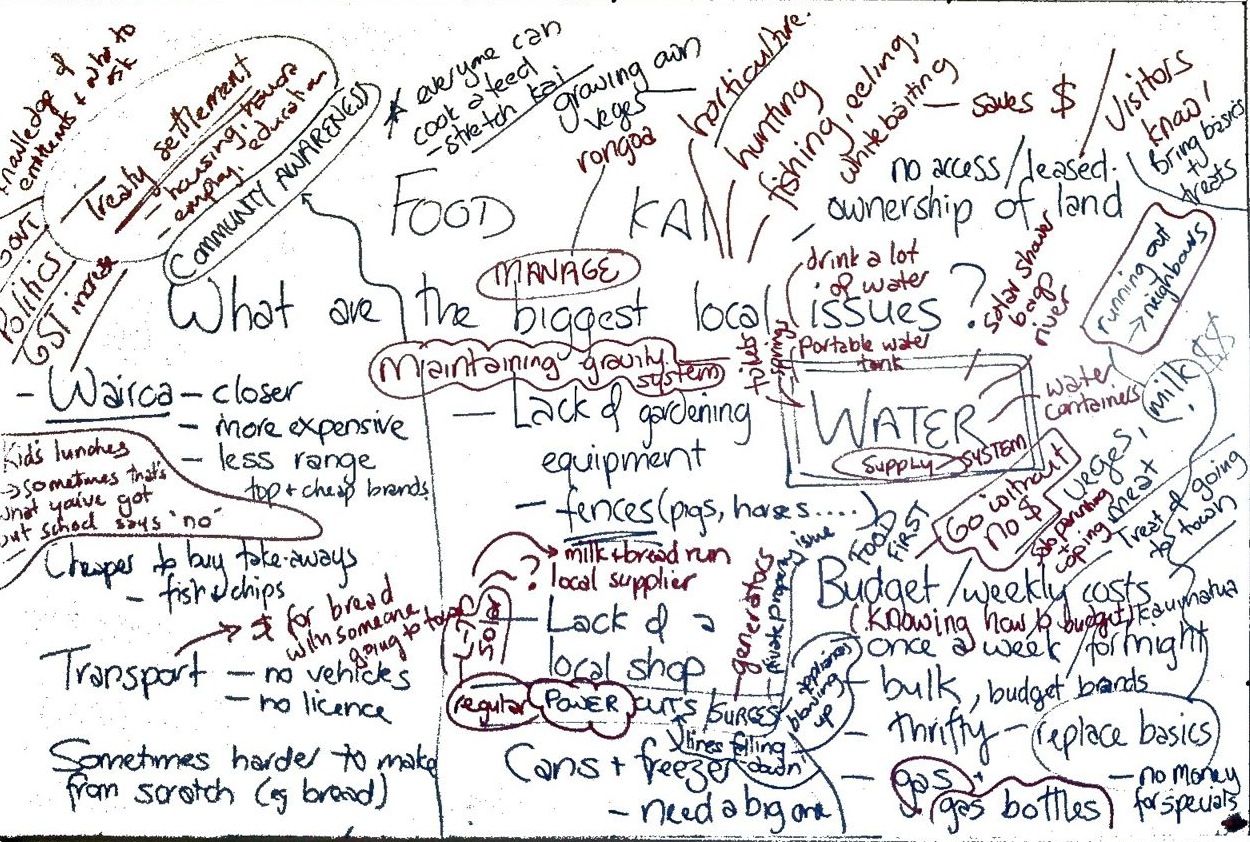 knowledge of
entitlements + who to
ask
Treaty settlement
- housing, trauma
- employ. education
COMMUNITY AWARENESS
GOVT
POLITICS
GST increase
* everyone can
cook a feed
- stretch kai
growing own
veges
rongoa
horticulture.
hunting
fishing, eeling,
whitebaiting
— saves $
Visitors
know,
bring basics
+ treats
no access/leased.
- ownership of land
FOOD / KAI
MANAGE
What are the biggest local issues?
drink a lot
of water
solar shower
bags
river
running out
→ neighbours
Maintaining gravity
system
toilets
springs
Portable water
tank
WATER
SUPPLY SYSTEM
water
containers
milk $$
- Wairoa - closer
- more expensive
- less range
top + cheap brands
Kids lunches
→ sometimes that's
what you've got
but school says "no"
— Lack of gardening
equipment
- fences (pigs, horses....)
FOOD
FIRST
Go without
no $
veges,
meat
+
coping
Treat of going
to town
Cheaper to buy take-aways
- fish + chips
→ $ for bread
with someone
going to town
Transport - no vehicles
- no licence
Sometimes harder to make
from scratch (eg bread)
→ milk + bread run
? local supplier
solar
- Lack of a
local shop
generators
private property issue
regular POWER CUTS / SURGES
appliances
blowing
up
lines falling
down
Cans + freezer
- need a big one
Budget/weekly costs
(Knowing how to budget)
Kaumatua
once a week / fortnight
- bulk, budget brands
- thrifty - replace basics
- gas +
gas bottles
- no money
for specials